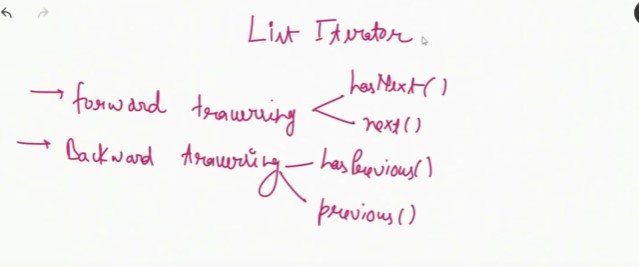 List Iterator
→ forward traversing hasNext()
next()
→ Backward traversing hasPrevious()
previous()